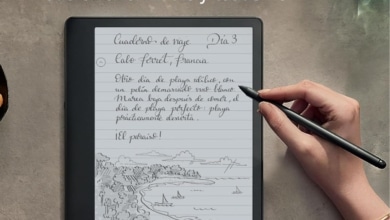 Cuaderno de viaje Día 3
Cabo Ferret, Francia.
Otro día de playa idílico, con
un pelín demasiado vino blanco.
Marea baja después de comer, el
día de playa perfecto: playa
prácticamente desierta.
¡El paraíso!